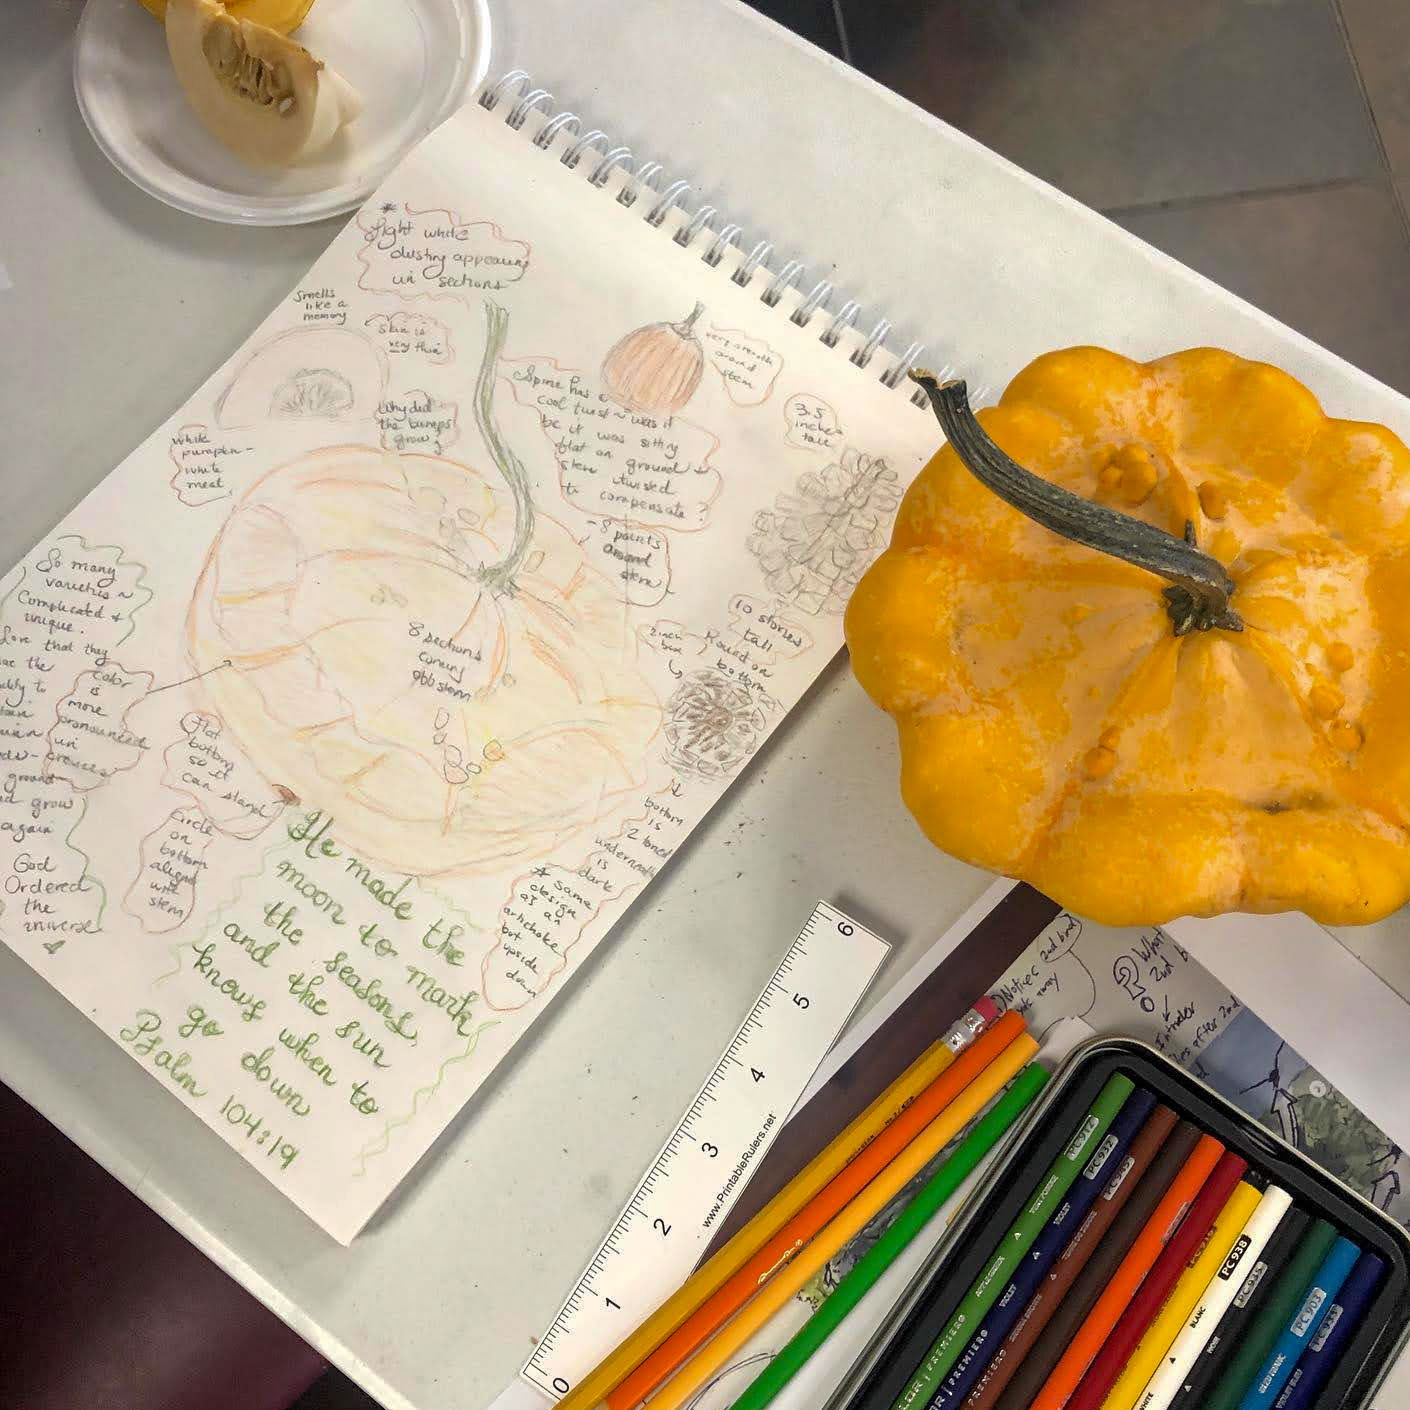 *
light white
dusting appearing
in sections
Smells
like a
memory
Skin is
very thin
very smooth
around
stem
Spine has a
cool twist ~ was it
bc it was sitting
flat on ground &
stem twised
to compensate?
3.5
inches
tall
Why did
the bumps
grow?
white
pumpkin -
white
meat
- 8 points
around
stem
So many
varieties ~
Complicated &
unique.
Love that they
the
to
ground
grow
again
God
Ordered
the
universe
Color
is
more
pronounced
in
creuces
8 sections
coming
off stem
10 stories
tall
2 inch
Round on
bottom
Flat
bottom
so it
can stand
Circle
on
bottom
aligns
with
stem
bottom
is
2 toned
underneath
is
dark
* Same
design
as an
artichoke
but
upside
down
He made the
moon to mark
the seasons,
and the sun
knows when to
go down
Psalm 104:19
0 1 2 3 4 5 6
www.PrintableRulers.net
Notice 2nd bird
away
What
2nd b
?
Intruder
after 2nd
PC 912
APPLE GREEN
PREMIERO
PC 932
VIOLET
PREMIERO
PC 945
PREMIERO
PC 938
BLANC
WHITE
PC 935
NOIR
PC 903